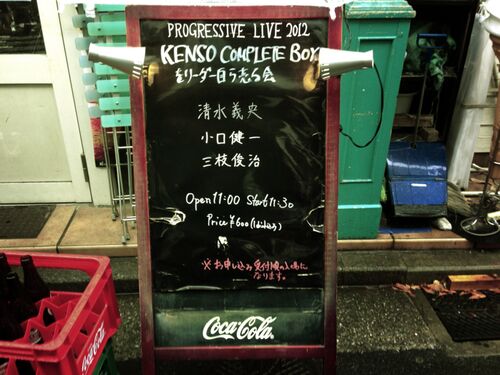 PROGRESSIVE LIVE 2012
KENSO COMPLETE BOX
をリーダー自ら売る会
清水義央
小口健一
三枝俊治
Open 11:00 Start 11:30
Price ¥600
※お申し込み受付順の入場に
なります。
Coca-Cola